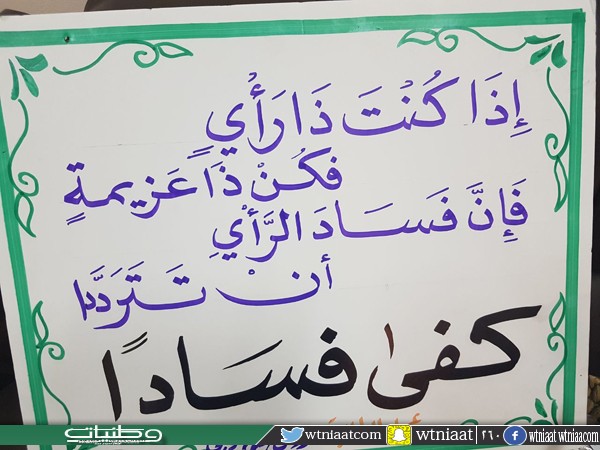 إِذَا كُنْتَ ذَا رَأْيٍ
فَكُنْ ذَا عَزِيمةٍ
فَإِنَّ فَسَادَ الرَّأْيِ
أن تَتَرَدَّدا
كفىٰ فسادًا
وطنيات wtniaatcom wtniaat ٢١٠ wtniaat wtniaatcom